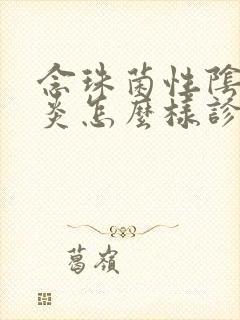 念珠菌性陰
炎怎麼樣診
葛嶺